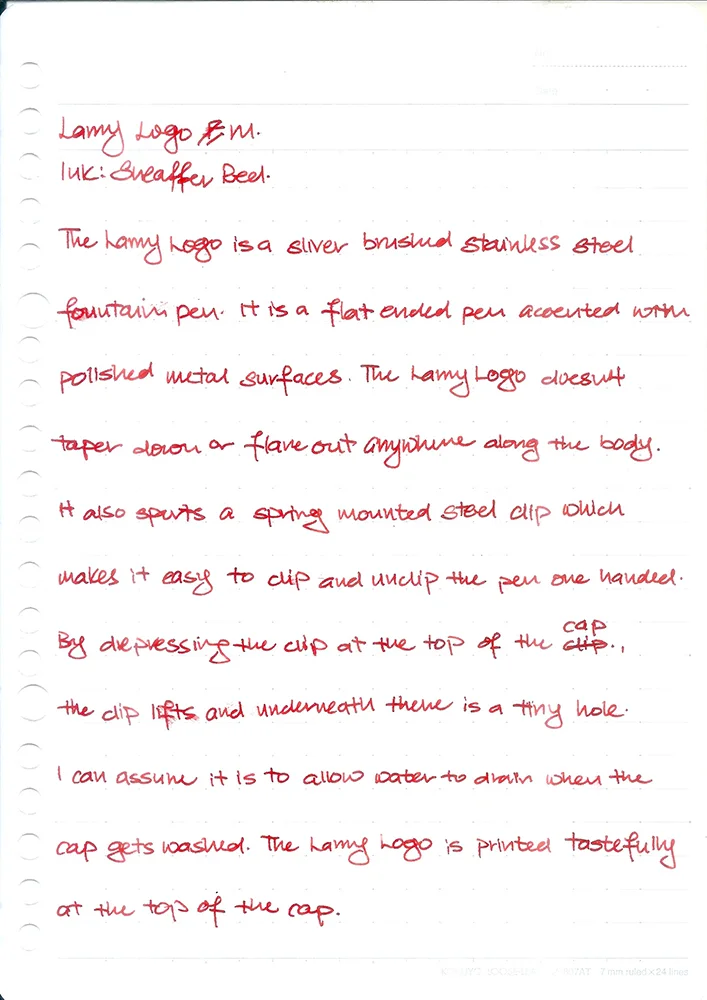 Lamy Logo F M.
Ink: Sheaffer Red.
The Lamy Logo is a sliver brushed stainless steel
fountain pen. It is a flat ended pen accented with
polished metal surfaces. The Lamy Logo doesn't
taper down or flare out anywhere along the body.
It also sports a spring mounted steel clip which
makes it easy to clip and unclip the pen one handed.
By depressing the clip at the top of the clip cap.,
the clip lifts and underneath there is a tiny hole.
I can assume it is to allow water to drain when the
cap gets washed. The Lamy Logo is printed tastefully
at the top of the cap.
7 mm ruled × 24 lines